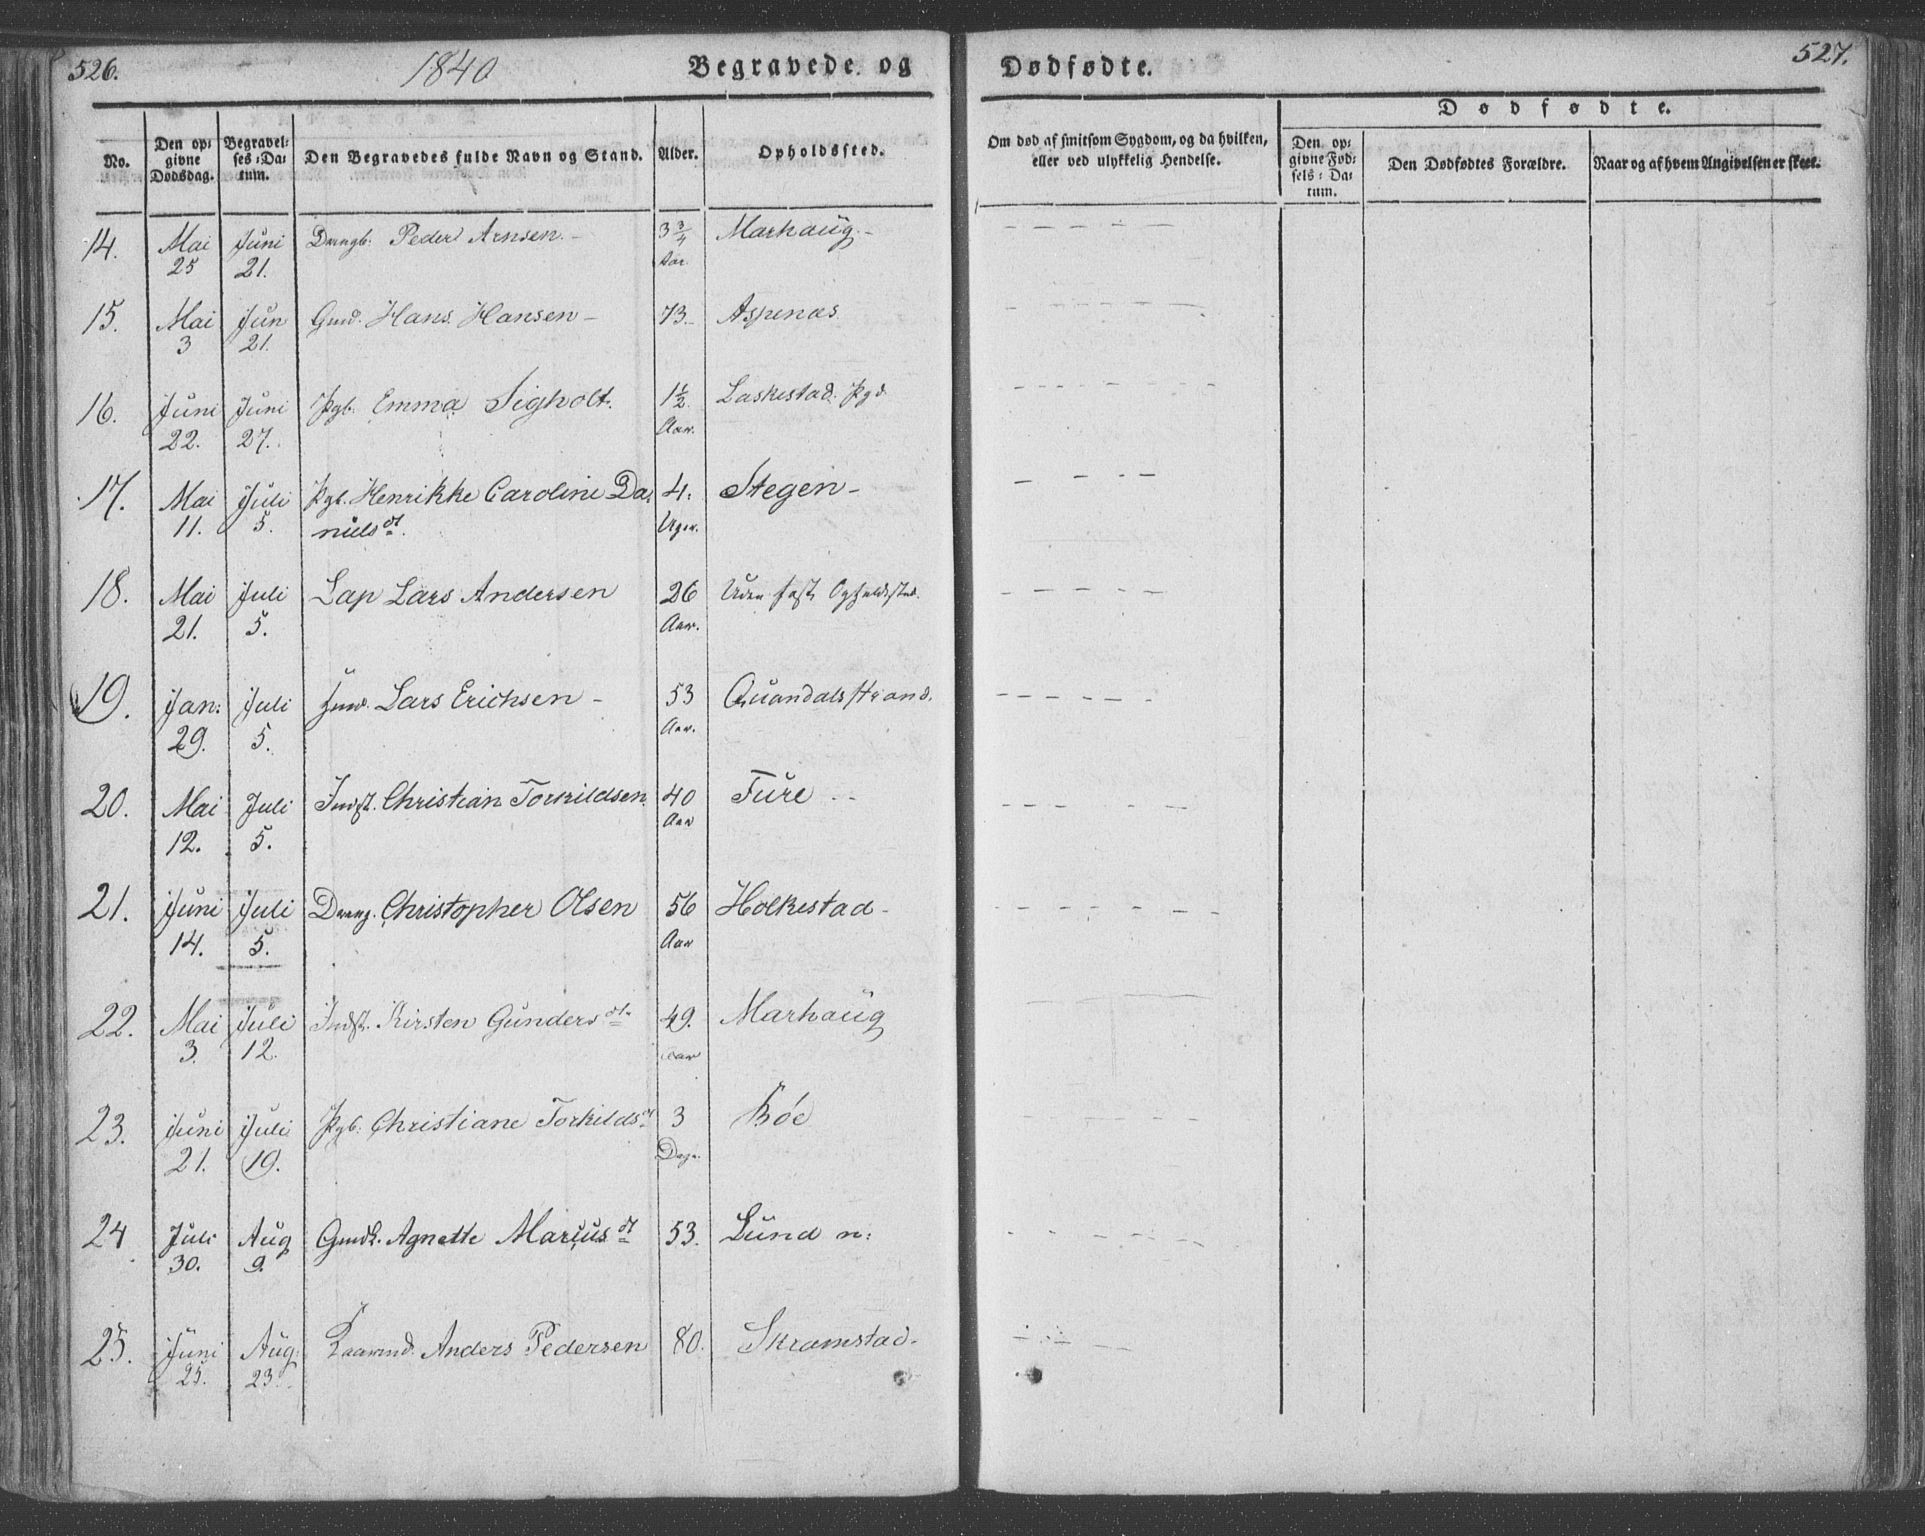 526.
1840
Begravede og
Dødfødte.
527.
No.
Den op-
givne
Dødsdag.
Begravel-
ses-Da-
tum.
Den Begravedes fulde Navn og Stand.
Alder.
Opholdssted.
Om død af smitsom Sygdom, og da hvilken,
eller ved ulykkelig Hendelse.
Dødfødte.
Den op-
givne Fød-
sels-Da-
tum.
Den Dødfødtes Forældre.
Naar og af hvem Angivelsen er skeet.
14. Mai Juni Drengb. Peder Arnsen 3 3/4 Marhaug.
25 21. Aar
15. Mai Jun Gmd. Hans Hansen 73. Aspenæs
3 21.
16. Juni Juni Pgb. Emma Sigholt. 1 1/2 Laskestad. Pgd
22. 27. Aar.
17. Mai Juli Pgb. Henrikke Caroline Da- 4. Stegen
11. 5. nielsdt. Uger.
18. Mai Juli Lap Lars Andersen 26 Uden fast Opholdsted.
21. 5. Aar.
19. Jan: Juli Lars Erichsen 53 Quandalsstrand.
29. 5. Aar.
20. Mai Juli Indst. Christian Torkildsen 40 Fure
12. 5. Aar
21. Juni Juli Dreng. Christopher Olsen 56 Holkestad
14. 5. Aar
22. Mai Juli Indst. Kirsten Gundersdt. 49. Marhaug
3. 12. Aar
23. Juni Juli Pgb: Christiane Torkildsdt 3 Bóe
21. 19. Dage
24 Juli Aug Gmdk. Agnette Mariusdt 53. Lund n:
30. 9.
25. Juni Aug. Kaarmd. Anders Pedersen 80. Skramstad
25. 23.